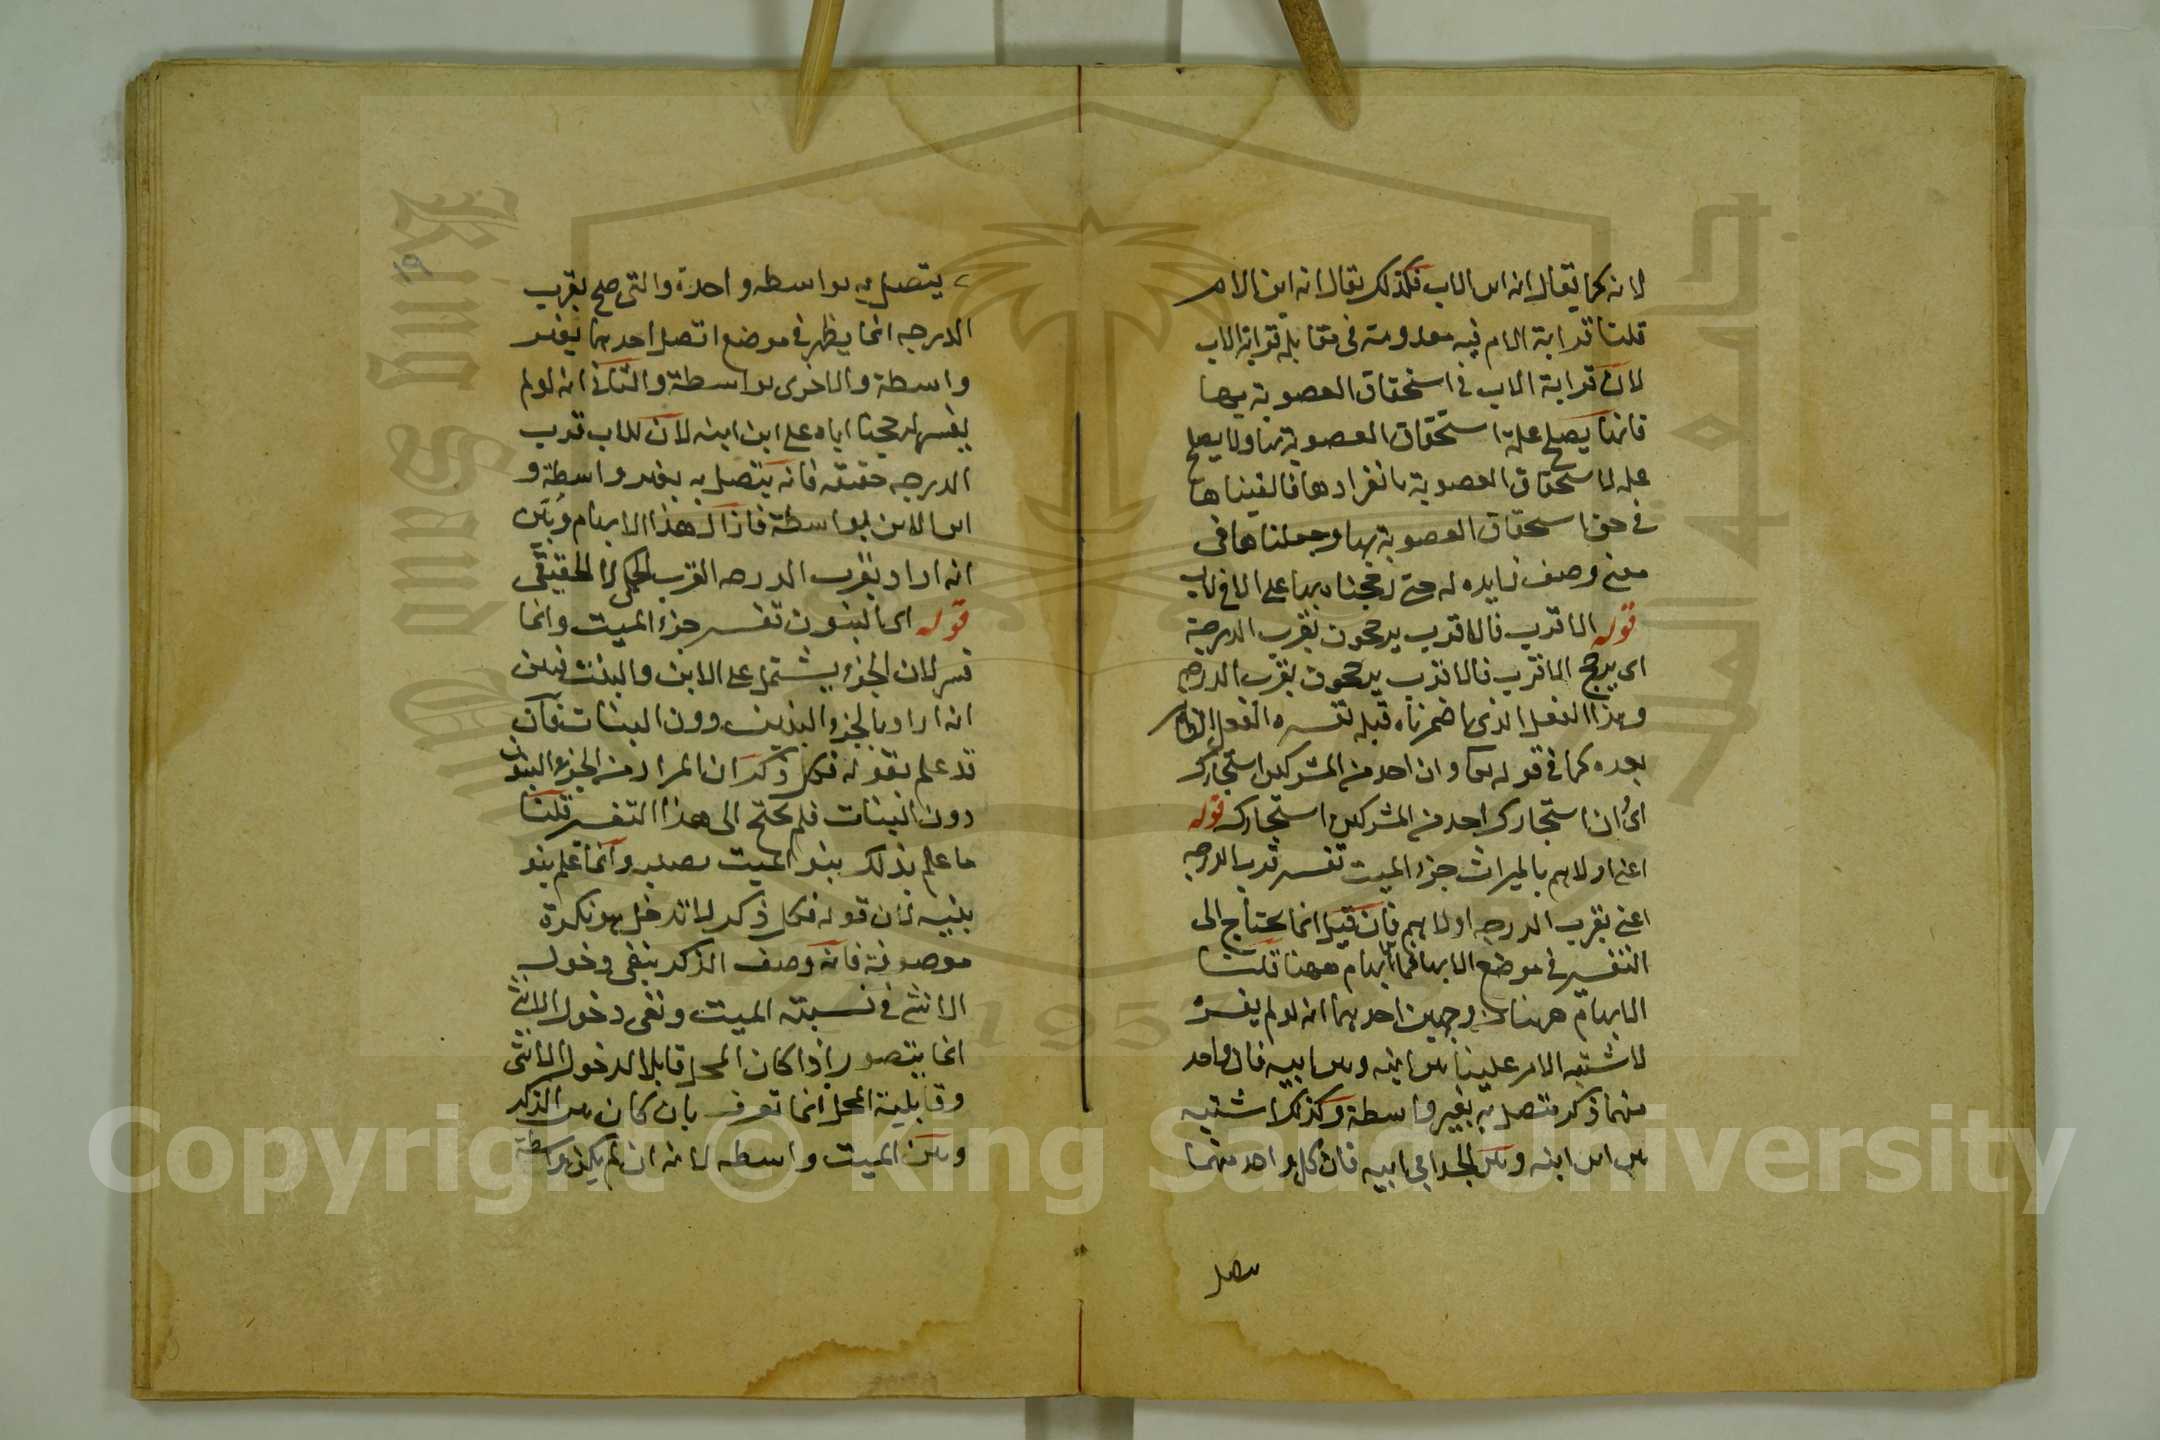 لانه كما يقال انه ابن الاب فكذلك يقال انه ابن الام
قلنا قرابة الام فيه معدومة فى مقابلة قرابة الاب
لان قرابة الاب فى استحقاق العصوبة بها
فانها يصلح علة استحقاق العصوبة بها ولا يصلح
علة لاستحقاق العصوبة بانفرادها فالقيناها
فى حق استحقاق العصوبة بها وجعلناها فى
معنى وصف زايده له حتى رجحناه بها على الاخ لاب
قوله الاقرب فالاقرب يرجحون بقرب الدرجة
اى يرجح الاقرب فالاقرب يرجحون بقرب الدرجه
وهذا الفعل الذى اضمرناه قبله تفسره الفعل
بعده كما فى قوله تعا وان احد من المشركين استجارك
اى وان استجارك احد من المشركين استجارك قوله
اعنى اولاهم بالميراث جزء الميت تفسير قرب الدرجه
اعنى بقرب الدرجه اولاهم فان قيل انما يحتاج الى
التفسير فى موضع الابهام فما ابهام ههنا قلنا
الابهام ههنا من وجهين احدهما انه لو لم يفسره
لاشتبه الامر علينا بين ابنه وبين ابيه فان واحد
منهما ذكر متصل به بغير واسطة وكذلك اشتبه
بين ابن ابنه وبين الجد ابى ابيه فان كل واحد منهما
يتصل
يتصل به بواسطه واحدة والترجيح بقرب
الدرجه انما يظهر فى موضع اتصل احدهما بغير
واسطة والاخرى بواسطة والثانى انه لو لم
يفسرها رجحنا اباه على ابن ابنه لان للاب قرب
الدرجه حقيقه فانه يتصل به بغير واسطة و
ابن الابن بواسطة فازال هذا الابهام وبين
انه اراد بقرب الدرجه القرب الحكمى لا الحقيقى
قوله اى البنون تفسير جزء الميت وانما
فسر لان الجزء يشتمل على الابن والبنت فبين
انه اراد بالجزء البنين دون البنات فان
قد علم بقوله فكل ذكر ان المراد من الجزء البنون
دون البنات فلم يحتج الى هذا التفسير قلنا
ما علم بذلك بنو الميت وانما علم بنو
بنيه لان قوله فكل ذكر لا تدخل هو نكرة
موصوفة فانه وصف الذكر بنفى دخول
الانثى فى نسبته الميت ونفى دخول الانثى
انما يتصور اذا كان المحل قابلا لدخول الانثى
وقابلية المحل انما تعرف بان كان بين الذكر
وبين الميت واسطه لانه ان لم يكن واسطة
١٩
Copyright © King Saud University
King Saud University
جامعة الملك
1957